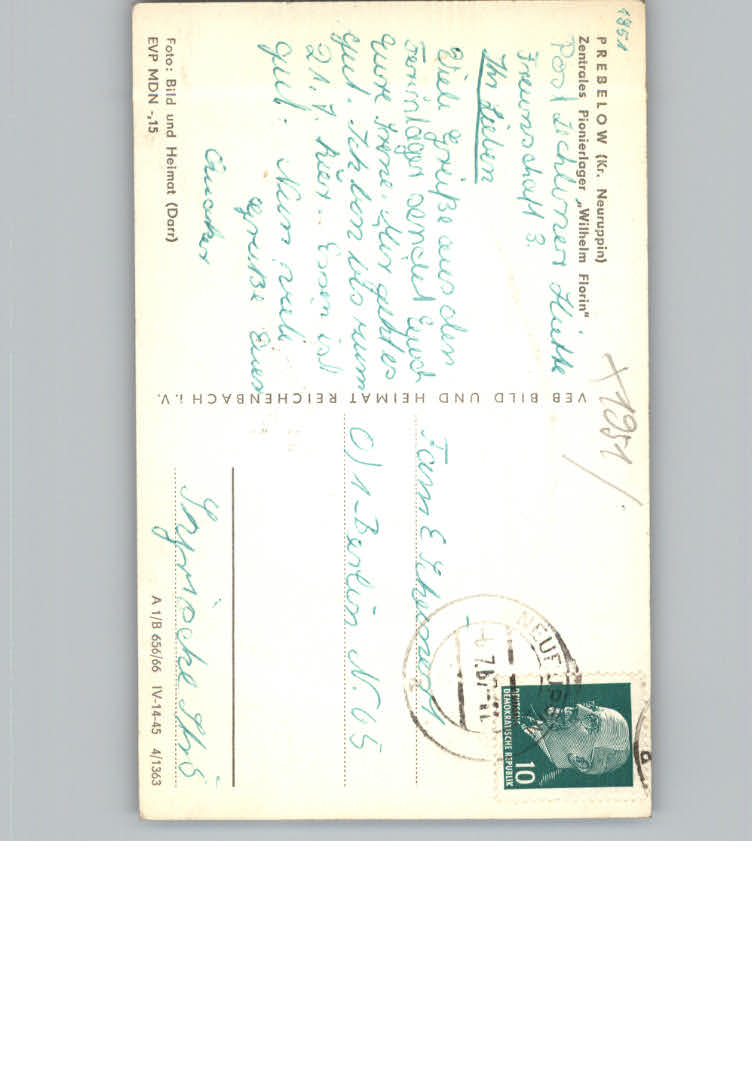 1951
PREBELOW (Kr. Neuruppin)
Zentrales Pionierlager „Wilhelm Florin"
Post Zechliner Hütte
Freunschaft 3.
Ihr Lieben
Viele Grüße aus dem
Ferinlager sendet Euch
eure Irene. Mir geht es
gut. Ich bin bis zum
21. 7. hier. Essen ist
gut. Nun viele
Grüße Eure
Foto: Bild und Heimat (Darr)
EVP MDN -,15
VEB BILD UND HEIMAT REICHENBACH i. V.
1951
Fam E
1-Berlin N. 65
Str 6
A 1/B 656/66 IV-14-45 4/1363
7.67
DEUTSCHE
DEMOKRATISCHE REPUBLIK
10
a